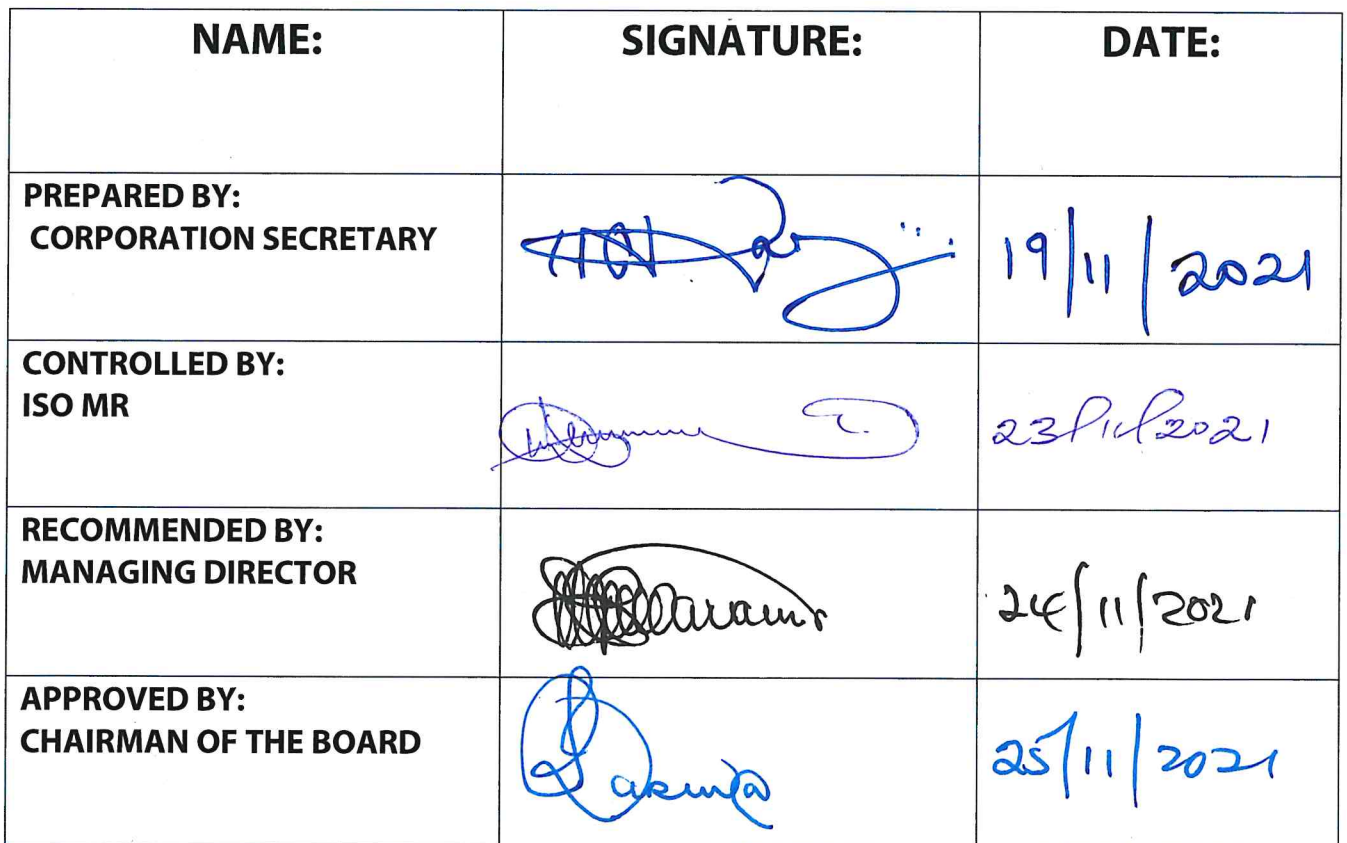 NAME: SIGNATURE: DATE:
PREPARED BY:
CORPORATION SECRETARY
19/11/2021
CONTROLLED BY:
ISO MR
23/11/2021
RECOMMENDED BY:
MANAGING DIRECTOR
24/11/2021
APPROVED BY:
CHAIRMAN OF THE BOARD
25/11/2021